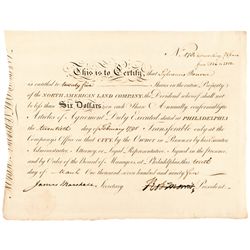 This is to Certify, that
is entitled to twenty five Shares in the entire Property
of the NORTH AMERICAN LAND COMPANY, the Dividend whereof shall not be less
than SIX DOLLARS on each Share Annually, conformably to
Articles of Agreement Duly Executed dated in PHILADELPHIA
the twentieth day of February 1795 Transferable only at the
Company's Office in that CITY, by the Owner in Person or by his Executor
Administrator, Attorney or Legal Representative. Signed in the presence
and by Order of the Board of Managers, at Philadelphia this tenth
day of March One thousand seven hundred and ninety five
James Marshall Secretary Robt Morris President